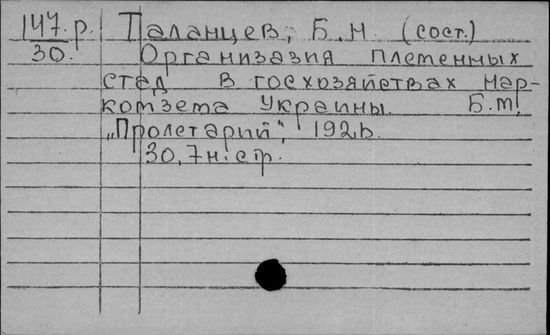 147.р. Паланцев, Б.Н. (сост.)
30. Организазия племенных
стад в госхозяйствах Нар-
комзема Украины. Б.м,
„Пролетарий", 1926.
30,7 н. стр.